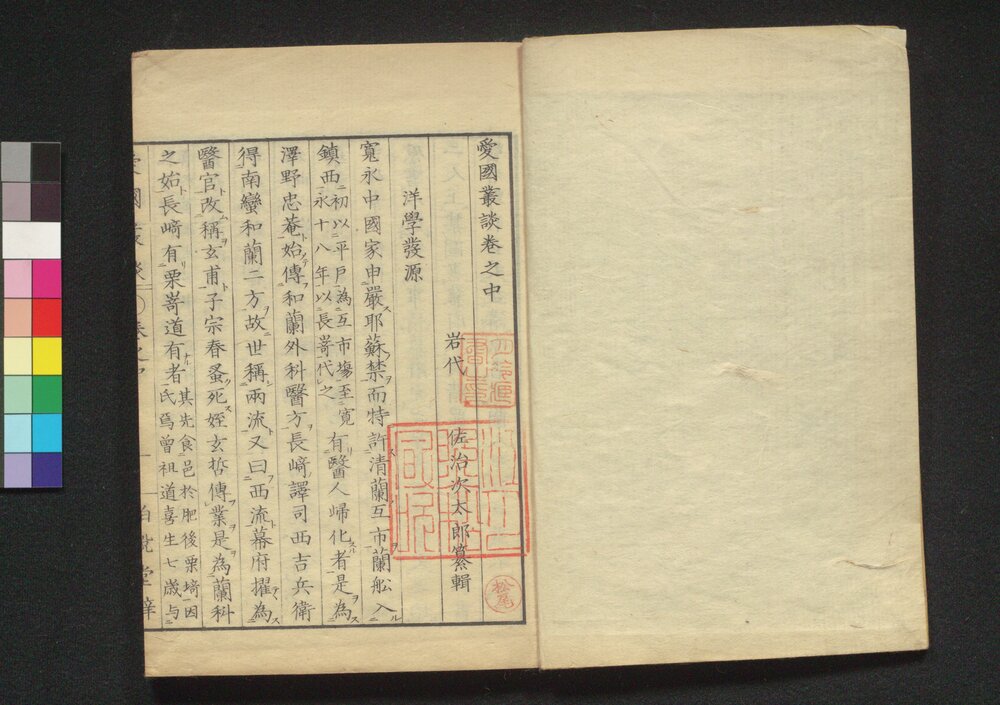 愛國叢談卷之中
岩代 佐治次太郎纂輯
洋學發源
寬永中國家申嚴耶蘇禁而特許清蘭互市蘭舩入
鎮西初以平戶為互市塲至寬永十八年以長嵜代之有醫人歸化者是為
澤野忠菴始傳和蘭外科醫方長崎譯司西吉兵衛
得南蠻和蘭二方故世稱兩流又曰西流幕府擢為
醫官改稱玄甫子宗春蚤死姪玄哲傳業是為蘭科
之始長崎有栗嵜道有者其先食邑於肥後栗埼因氏焉曾祖道喜生七歲与
松尾